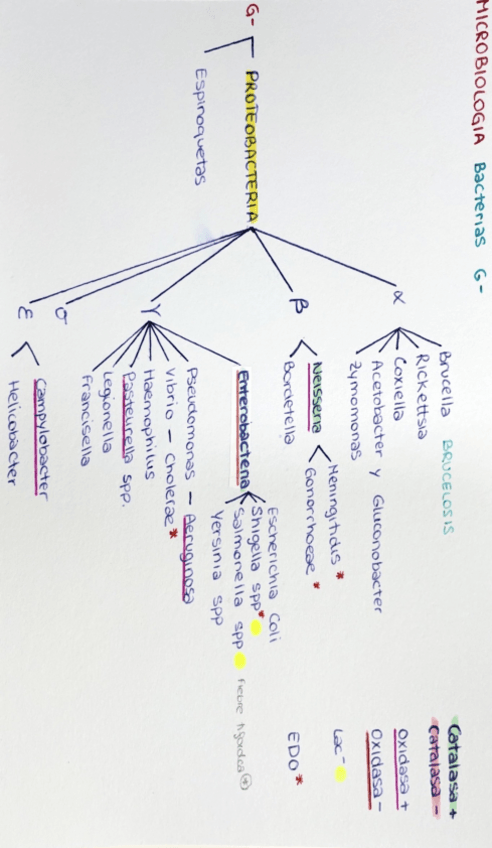 MICROBIOLOGIA Bacterias G-
G-
PROTEOBACTERIA
Espiroquetas
α
Brucella BRUCELOSIS
Rickettsia
Coxiella
Acetobacter y Gluconobacter
Zymomonas
β
Neisseria
Meningitidis *
Gonorrhoeae *
Bordetella
γ
Enterobacteria
Escherichia Coli
Shigella spp *
Salmonella spp fiebre tifoidea (+)
Yersinia spp
Pseudomonas - Aeruginosa
Vibrio - Cholerae *
Haemophilus
Pasteurella spp.
Legionella
Francisella
σ
ε
Campylobacter
Helicobacter
Catalasa +
Catalasa -
Oxidasa +
Oxidasa -
Lac-
EDO *